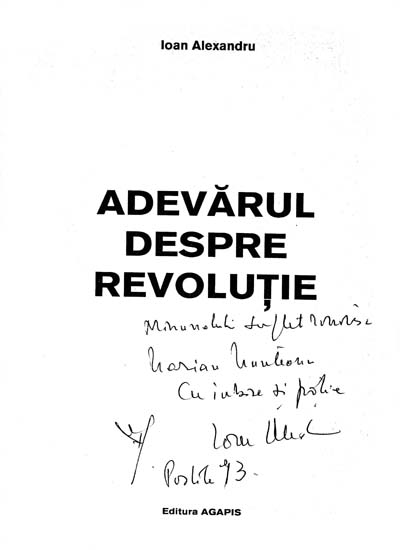 Ioan Alexandru
ADEVĂRUL
DESPRE
REVOLUȚIE
Minunatului suflet românesc
Marian Munteanu
Cu iubire și prețuire
Ioan Alexandru
Paștile 93.
Editura AGAPIS